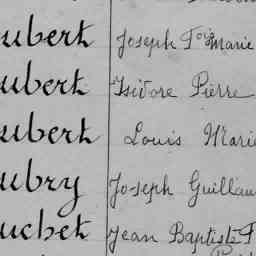 ubert Joseph F^ois Marie
ubert Isidore Pierre
ubert Louis Marie
ubry Joseph Guillau
uchet Jean Baptiste F